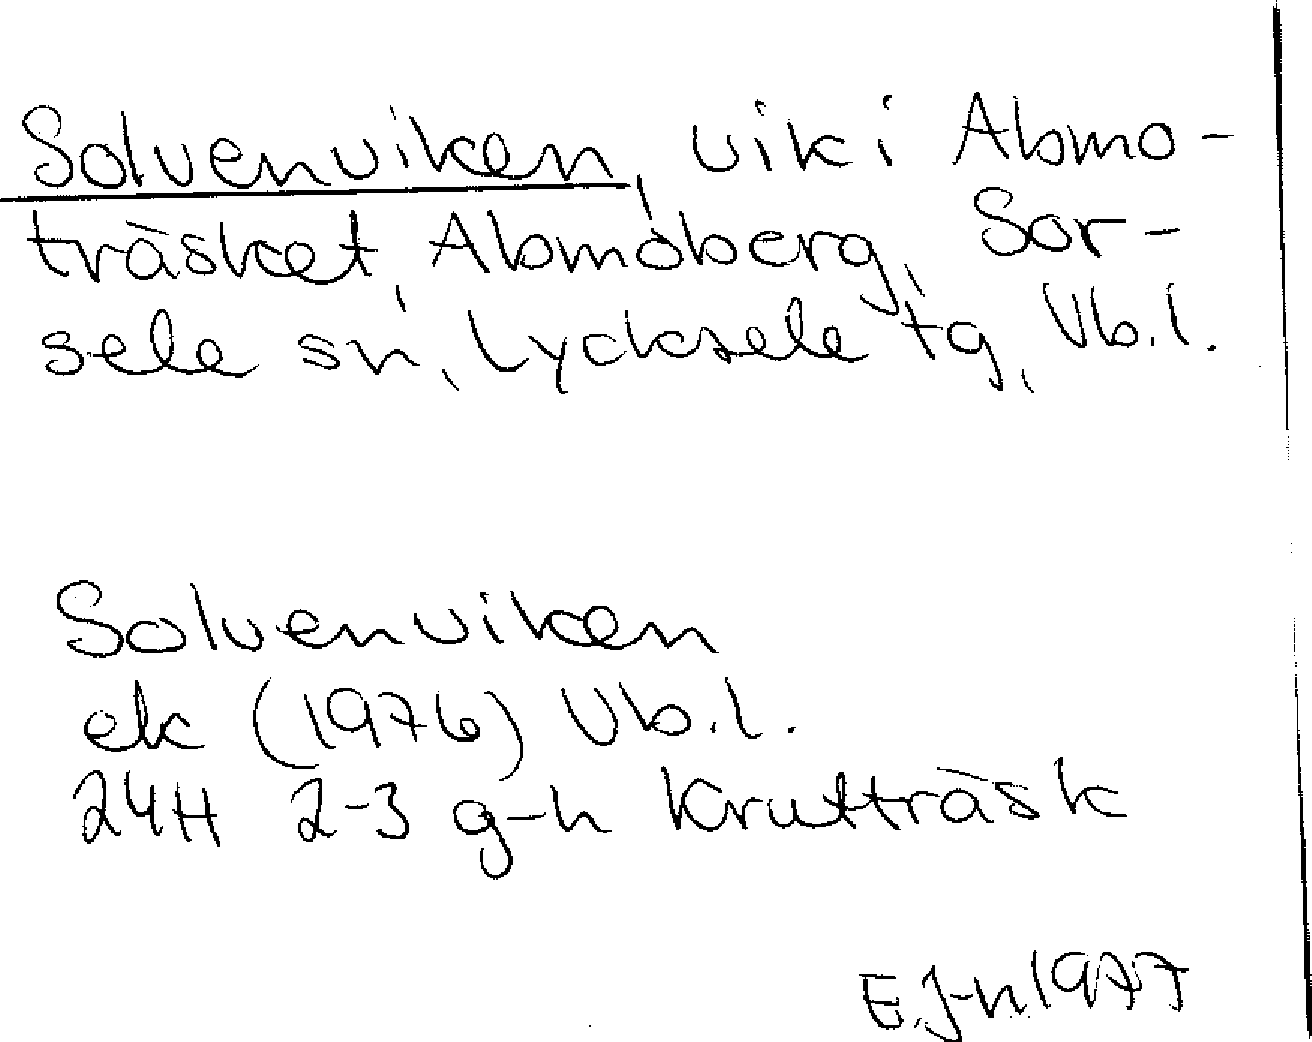 Solvenviken, vik i Abmo-
träsket, Abmoberg, Sor-
sele sn, Lycksele tg, Vb.l.
Solvenviken
ek (1976) Vb.l.
24H 2-3 g-h Krutträsk
E.J-n.1977